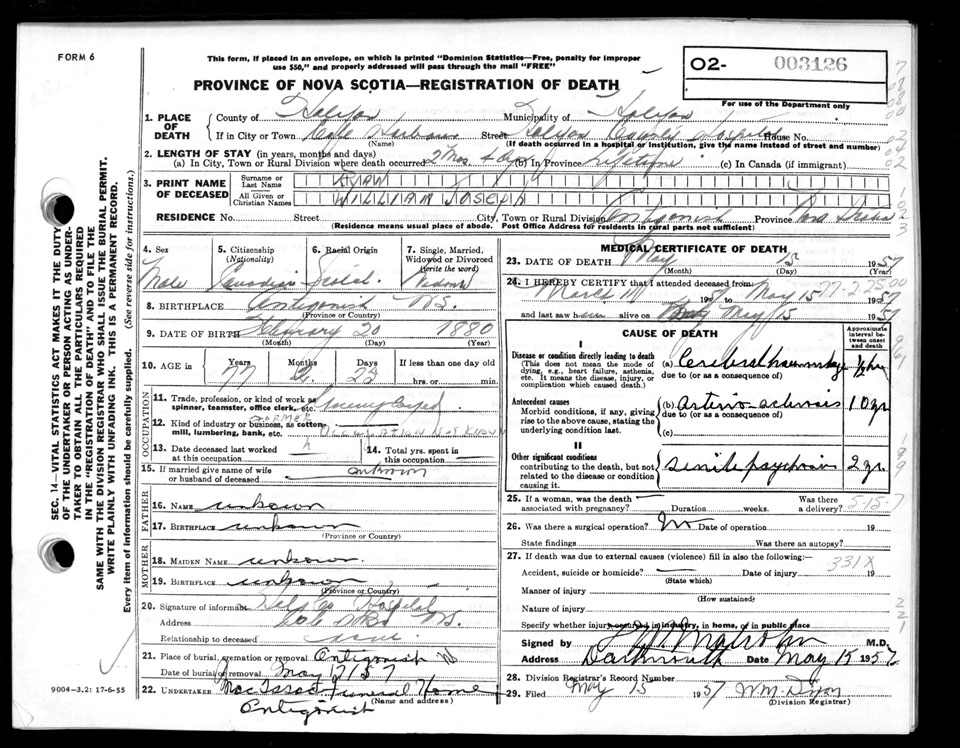 FORM 6
This form, if placed in an envelope, on which is printed "Dominion Statistics—Free, penalty for improper
use $50," and properly addressed will pass through the mail "FREE"
PROVINCE OF NOVA SCOTIA—REGISTRATION OF DEATH
O2- 003126
For use of the Department only
1. PLACE OF DEATH
County of Halifax Municipality of Halifax
If in City or Town Cole Harbour Street Halifax County Hospital House No.
(Name) (If death occurred in a hospital or institution, give the name instead of street and number)
2. LENGTH OF STAY (in years, months and days)
(a) In City, Town or Rural Division where death occurred 2 Mos 4 dys (b) In Province Lifetime (c) In Canada (if immigrant)
3. PRINT NAME OF DECEASED
Surname or Last Name SHAW
All Given or Christian Names WILLIAM JOSEPH
RESIDENCE No. Street City, Town or Rural Division Antigonish Province Nova Scotia
(Residence means usual place of abode. Post Office Address for residents in rural parts not sufficient)
4. Sex
Male
5. Citizenship (Nationality)
Canadian
6. Racial Origin
Scotch
7. Single, Married, Widowed or Divorced (write the word)
Widower
8. BIRTHPLACE Antigonish N.S.
(Province or Country)
9. DATE OF BIRTH February 20 1880
(Month) (Day) (Year)
10. AGE in
Years 77 Months 2 Days
If less than one day old
hrs. or min.
OCCUPATION
11. Trade, profession, or kind of work as spinner, teamster, office clerk, etc. Unemployed
12. Kind of industry or business, as cotton mill, lumbering, bank, etc. FORMER OCCUPATION NOT KNOWN
13. Date deceased last worked at this occupation
14. Total yrs. spent in this occupation
15. If married give name of wife or husband of deceased unknown
FATHER
16. NAME unknown
17. BIRTHPLACE unknown
(Province or Country)
MOTHER
18. MAIDEN NAME unknown
19. BIRTHPLACE unknown
(Province or Country)
20. Signature of informant Hfx Co Hospital
Address Cole Hbr N.S.
Relationship to deceased none
21. Place of burial, cremation or removal Antigonish
Date of burial or removal May 17 57
22. UNDERTAKER MacIsaac Funeral Home
(Name and address)
Antigonish
9004-3.2: 17-6-55
MEDICAL CERTIFICATE OF DEATH
23. DATE OF DEATH May 15 1957
(Month) (Day) (Year)
24. I HEREBY CERTIFY that I attended deceased from:
March 11 1957 to May 15 1957
and last saw him alive on May 15 1957
77-2-25-00
CAUSE OF DEATH
Approximate interval between onset and death
I
Disease or condition directly leading to death
(This does not mean the mode of dying, e.g., heart failure, asthenia, etc. It means the disease, injury, or complication which caused death.)
(a) Cerebral haemorrhage ½ hr
due to (or as a consequence of)
Antecedent causes
Morbid conditions, if any, giving rise to the above cause, stating the underlying condition last.
(b) Arterio-sclerosis 10 yr
due to (or as a consequence of)
(c)
II
Other significant conditions
contributing to the death, but not related to the disease or condition causing it.
Senile psychosis 2 yr.
25. If a woman, was the death associated with pregnancy? Duration weeks. Was there a delivery?
5-15-7
26. Was there a surgical operation? No Date of operation 19
State findings Was there an autopsy?
27. If death was due to external causes (violence) fill in also the following:—
331X
Accident, suicide or homicide? Date of injury 19
(State which)
Manner of injury
(How sustained)
Nature of injury
Specify whether injury occurred in industry, in home, or in public place
Signed by M.D.
Address Dartmouth Date May 15 1957
28. Division Registrar's Record Number
29. Filed May 15 1957 W.M. Dixon
(Division Registrar)
SEC. 14—VITAL STATISTICS ACT MAKES IT THE DUTY
OF THE UNDERTAKER OR PERSON ACTING AS UNDERTAKER TO OBTAIN ALL THE PARTICULARS REQUIRED
IN THE "REGISTRATION OF DEATH" AND TO FILE THE
SAME WITH THE DIVISION REGISTRAR WHO SHALL ISSUE THE BURIAL PERMIT.
WRITE PLAINLY WITH UNFADING INK. THIS IS A PERMANENT RECORD.
Every item of information should be carefully supplied. (See reverse side for instructions.)